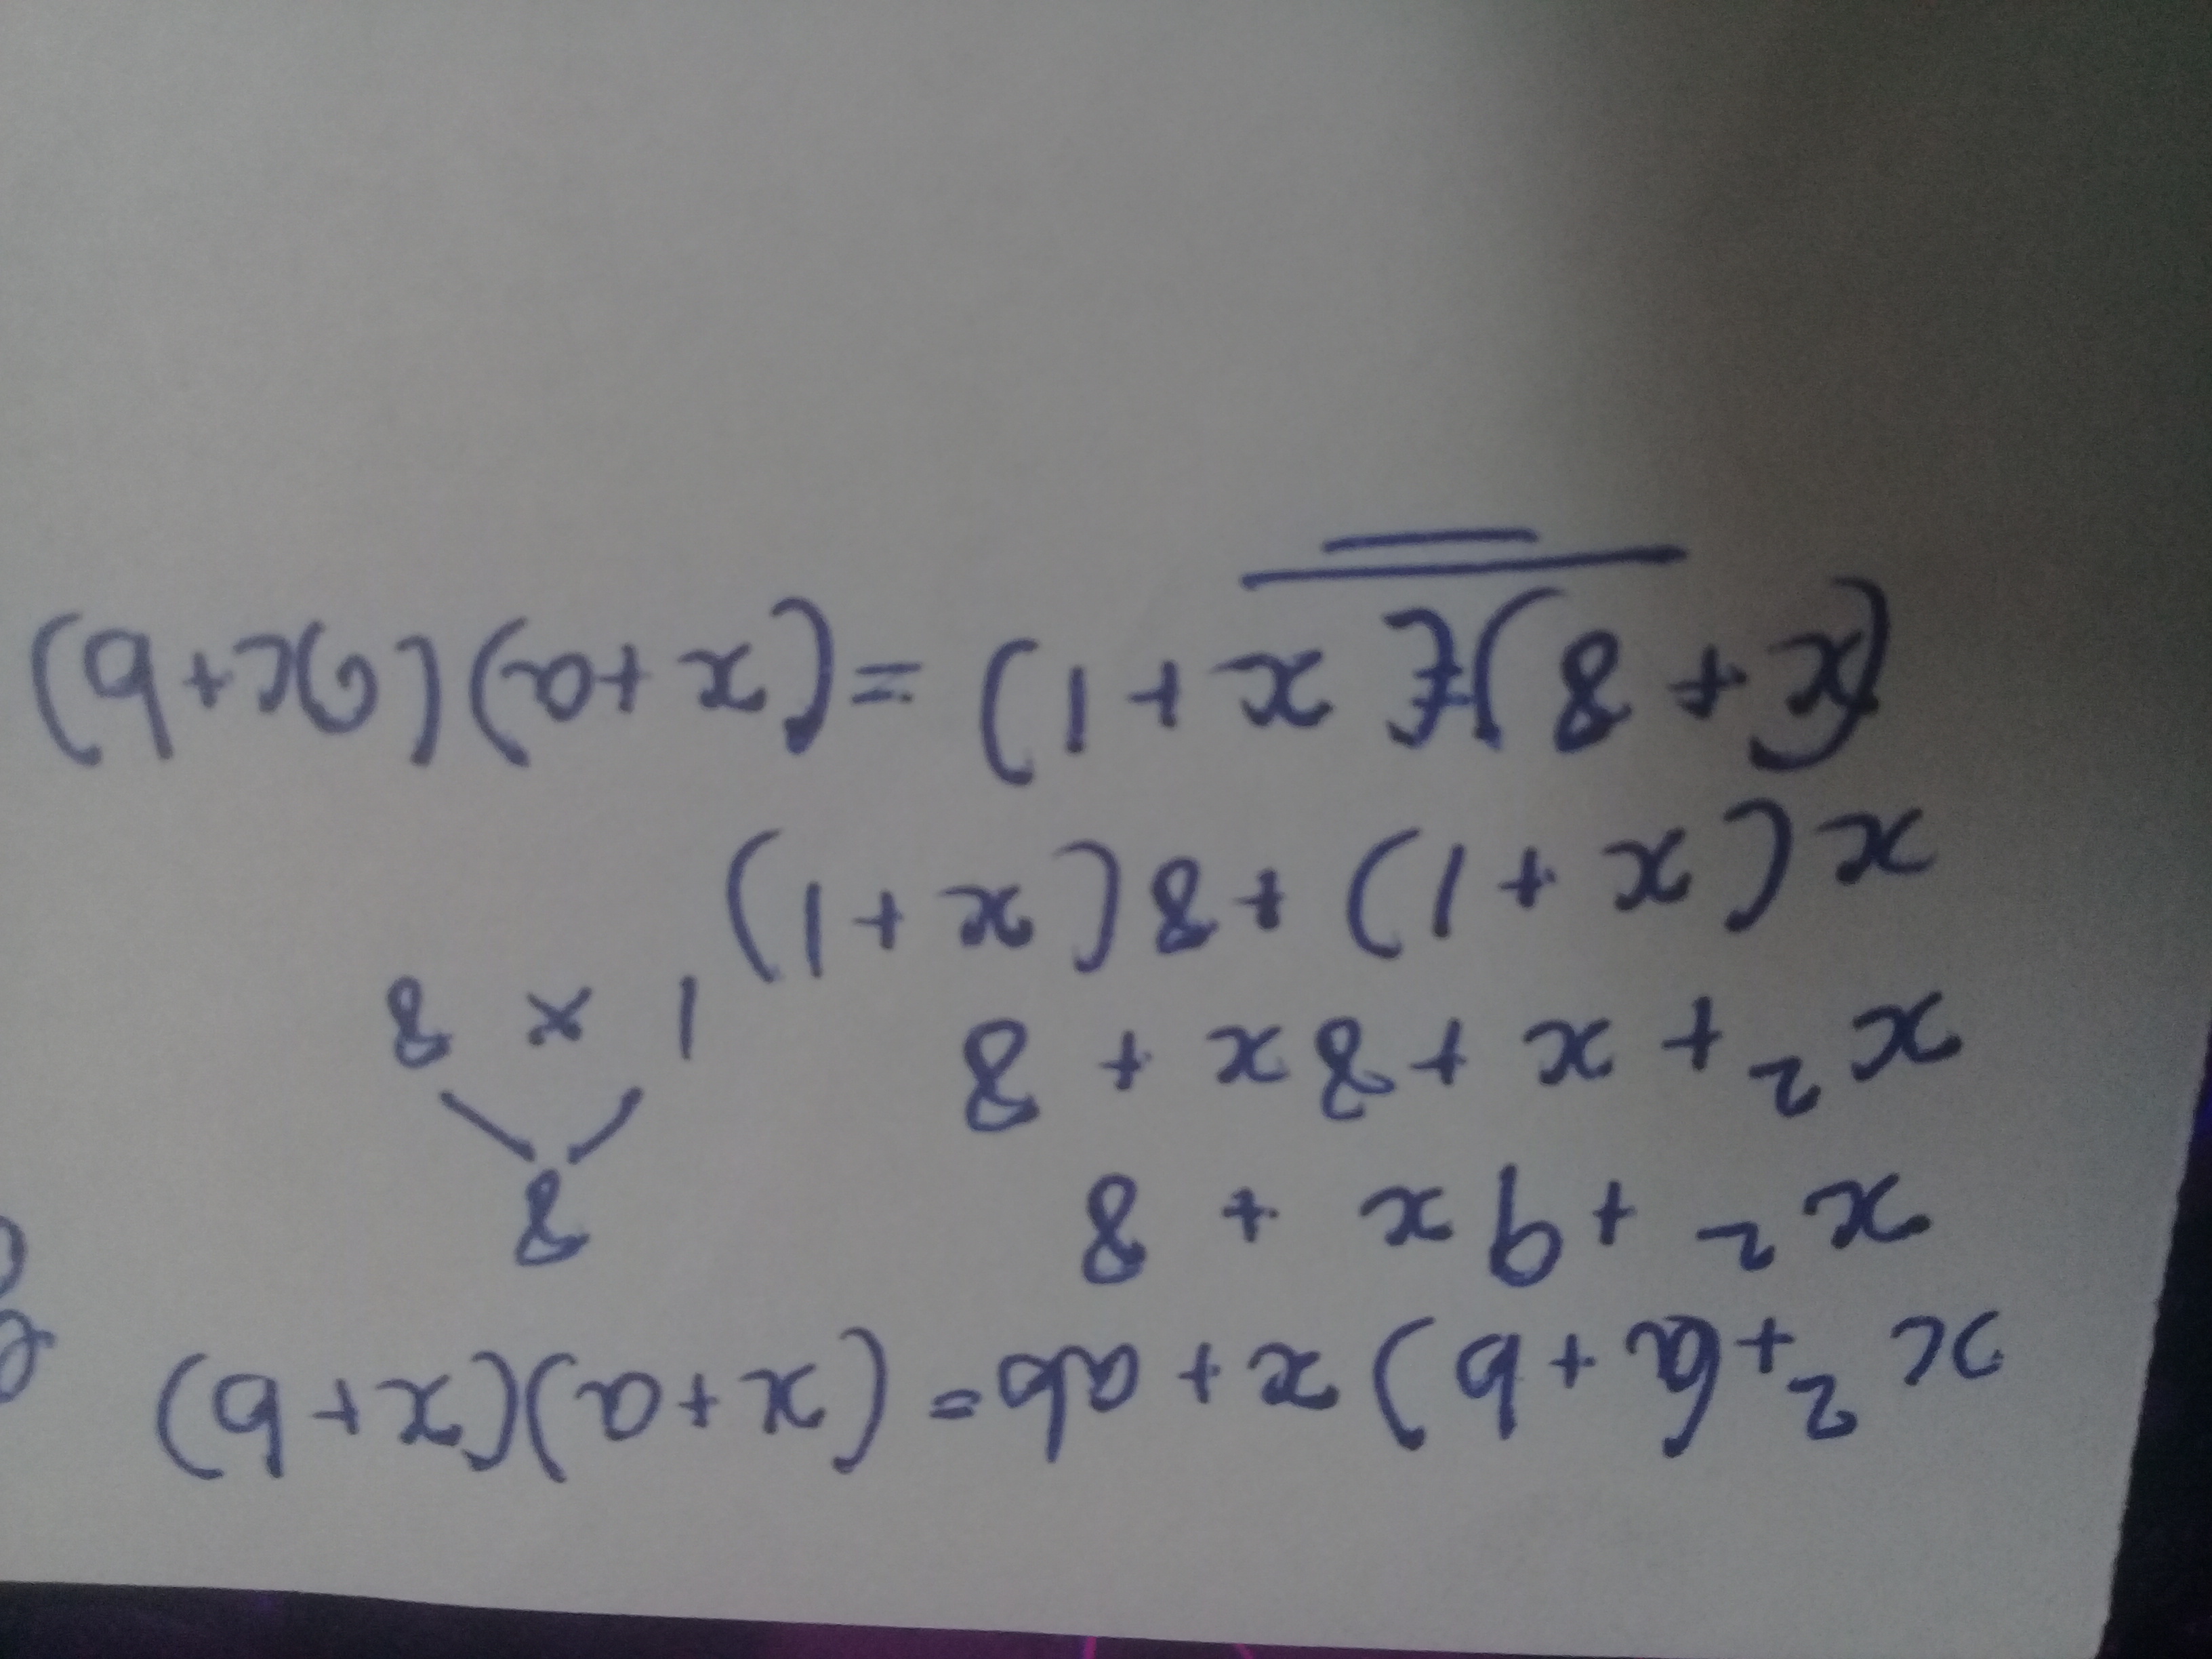 x² + (a + b) x + ab = (x + a)(x + b)
x² + 9x + 8
8
x² + x + 8x + 8
1 × 8
x(x + 1) + 8(x + 1)
(x + 8)(x + 1) = (x + a)(x + b)